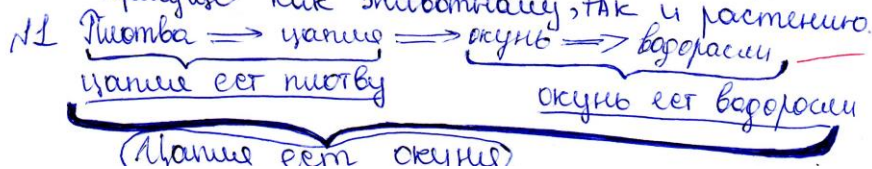 как животному, так и растению.
№1 Плотва ⟹ цапля ⟹ окунь ⟹ водоросли
цапля ест плотву
окунь ест водоросли
(Цапля ест окуня)